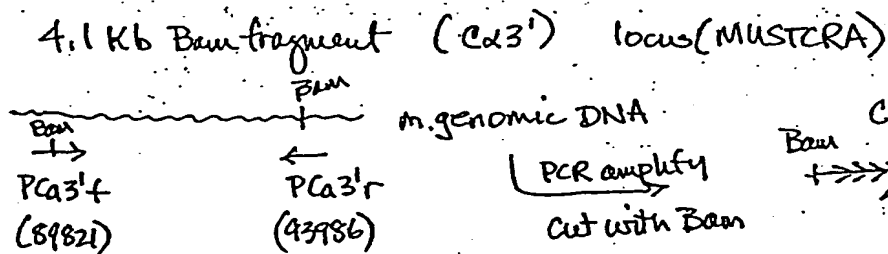 4.1 Kb Bam fragment (Cα3') locus (MUSTCRA)
Bam
Bam m. genomic DNA C
Bam
PCa3'f PCa3'r PCR amplify
(89821) (93986) Cut with Bam